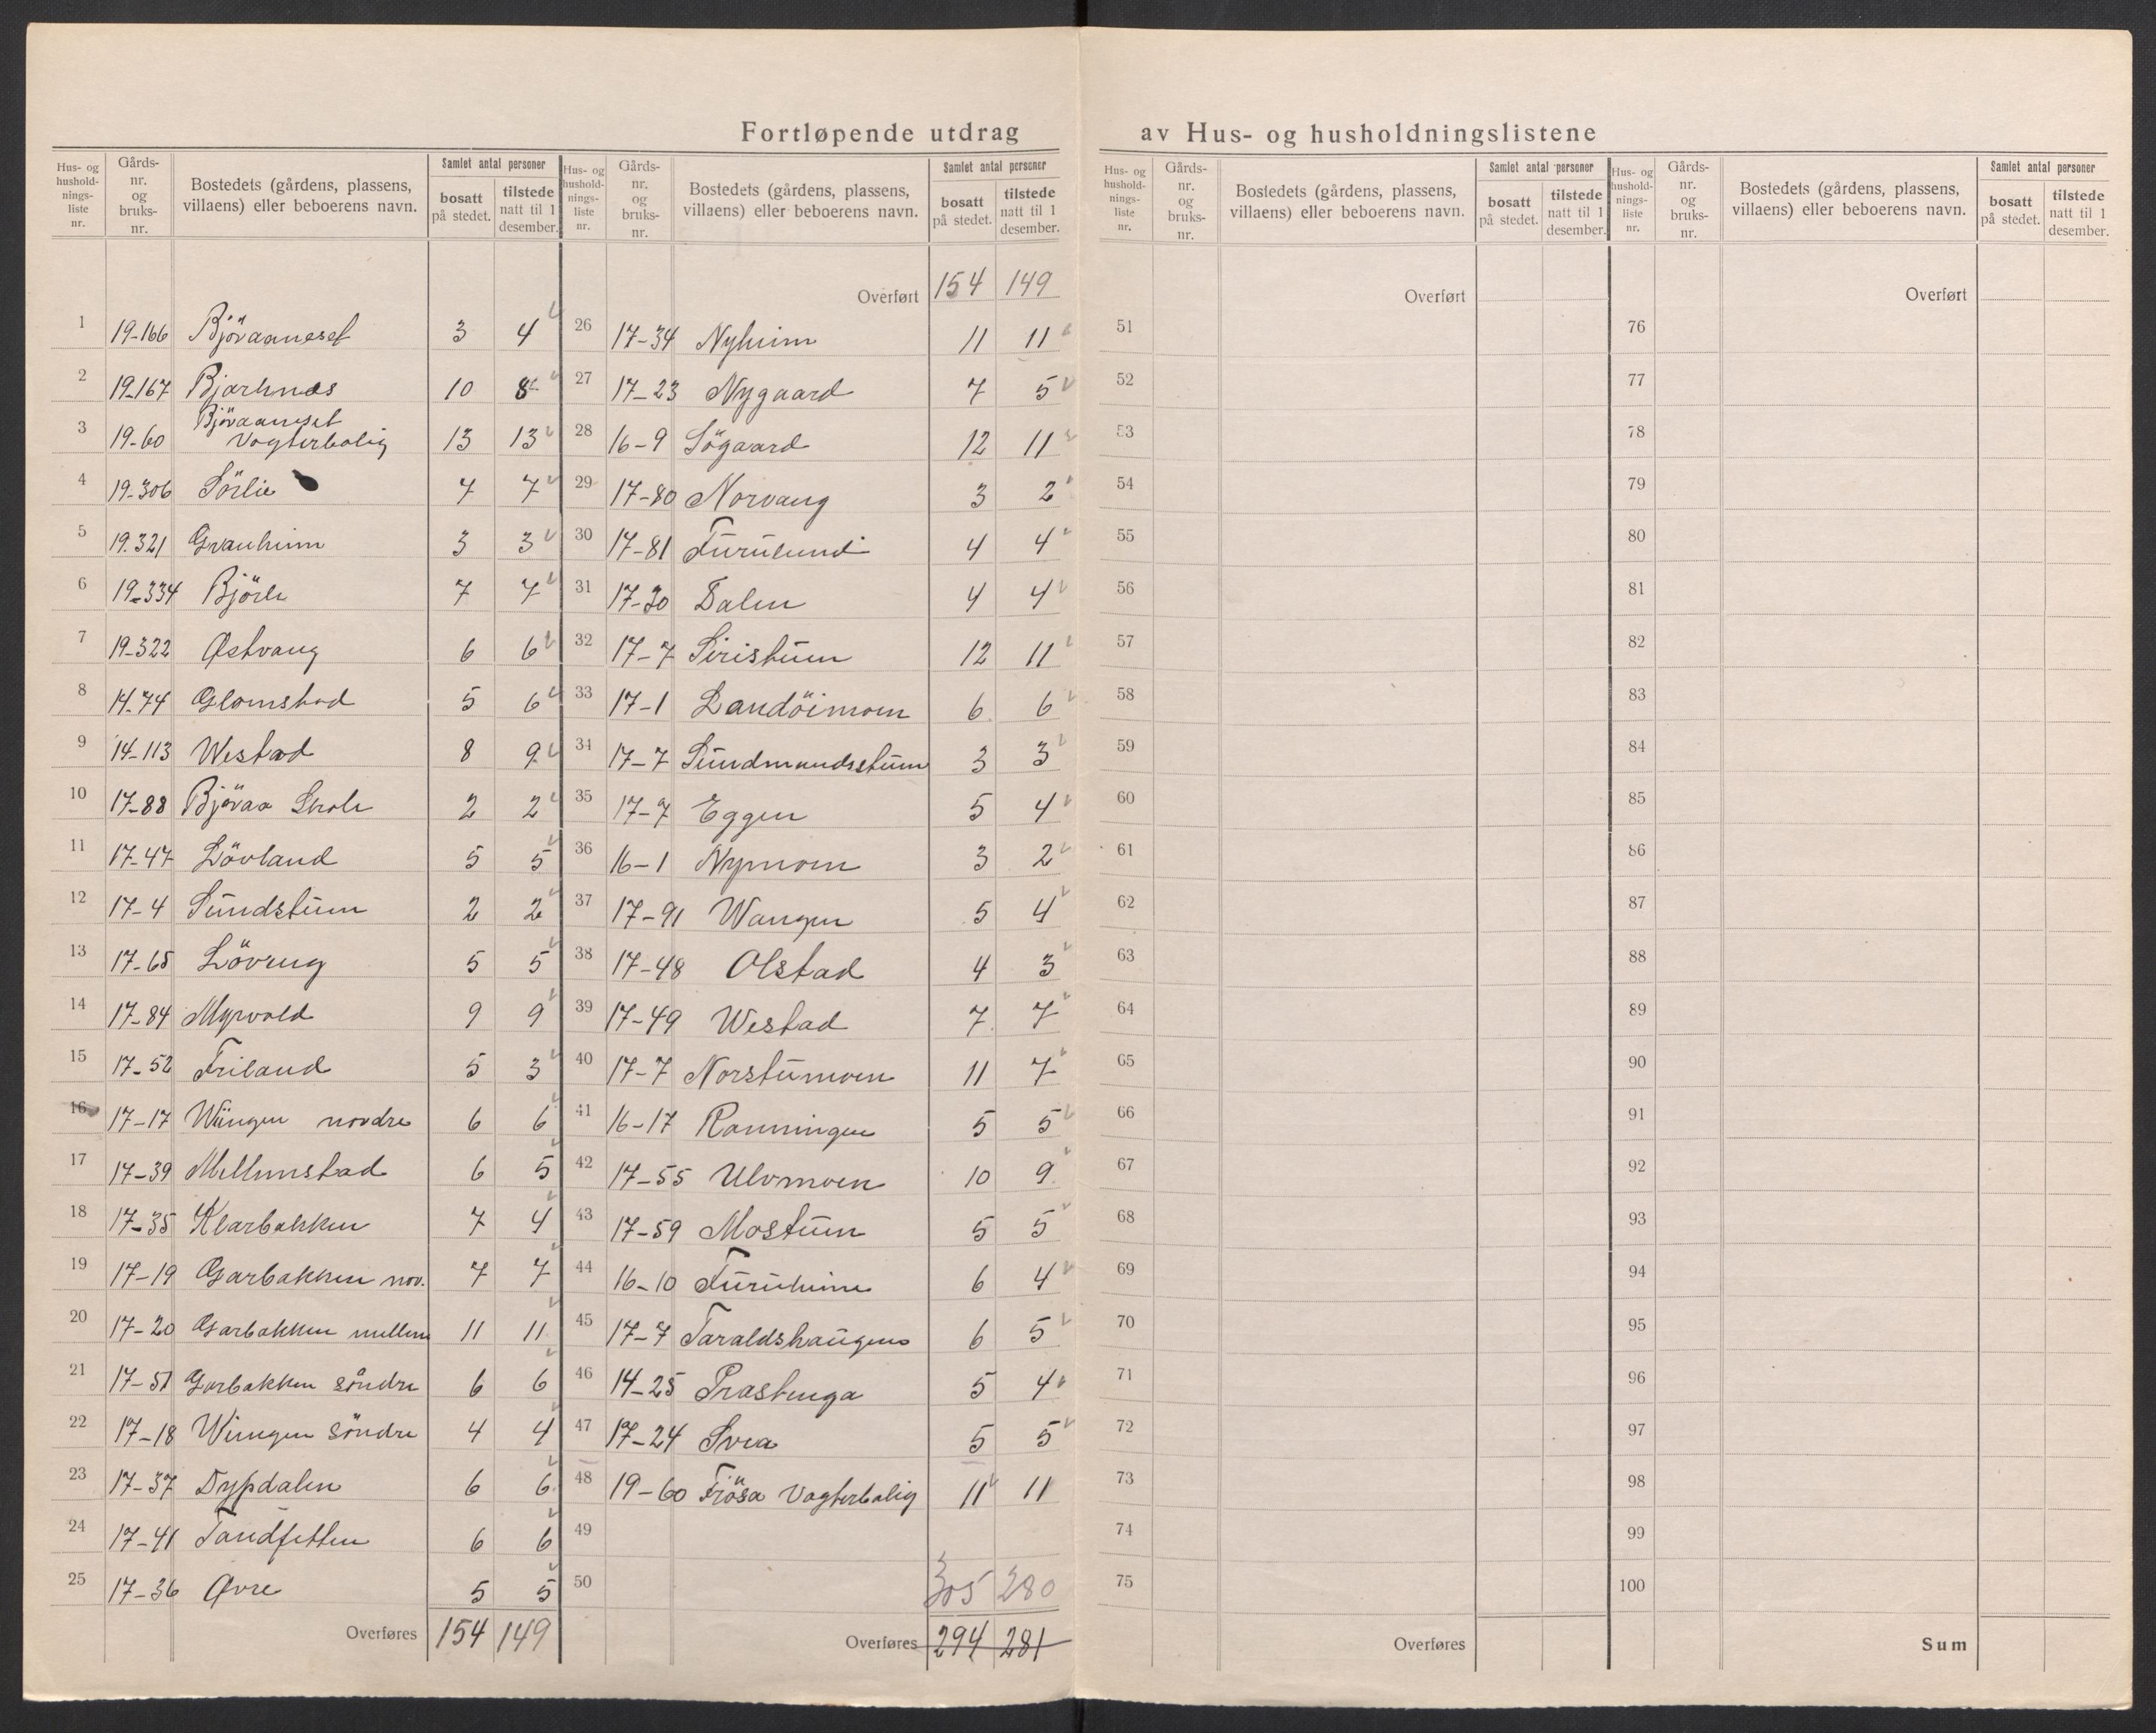 Fortløpende utdrag av Hus- og husholdningslistene
Hus- og hushold-nings-liste nr. | Gårds-nr. og bruks-nr. | Bostedets (gårdens, plassens, villaens) eller beboerens navn. | Samlet antal personer | bosatt på stedet. | tilstede natt til 1 desember.
1 19-166 Bjövaaneset 3 4
2 19-167 Bjarknæs 10 8
3 19-60 Bjövaaneset Vogterbolig 13 13
4 19-306 Sörlie 7 7
5 19.321 Granheim 3 3
6 19-334 Björli 7 7
7 19-322 Østvang 6 6
8 14-74 Glomstad 5 6
9 14-113 Westad 8 9
10 17-88 Bjövaa Skole 2 2
11 17-47 Lövland 5 5
12 17-4 Sundstuen 2 2
13 17-65 Löveng 5 5
14 17-84 Myrvold 9 9
15 17-52 Friland 5 3
16 17-17 Wingen nordre 6 6
17 17-39 Mellemstad 6 5
18 17-35 Klarbakken 7 4
19 17-19 Garbakken nor. 7 7
20 17-20 Garbakken mellem 11 11
21 17-51 Garbakken söndre 6 6
22 17-18 Wingen söndre 4 4
23 17-37 Dypdalen 6 6
24 17-41 6 6
25 17-36 Øvre 5 5
Overføres 154 149
Hus- og hushold-nings-liste nr. | Gårds-nr. og bruks-nr. | Bostedets (gårdens, plassens, villaens) eller beboerens navn. | Samlet antal personer | bosatt på stedet. | tilstede natt til 1 desember.
Overført 154 149
26 17-34 Nyheim 11 11
27 17-23 Nygaard 7 5
28 16-9 Sögaard 12 11
29 17-80 Norvang 3 2
30 17-81 Furulund 4 4
31 17-30 Dalen 4 4
32 17-7 Siristuen 12 11
33 17-1 Landöimoen 6 6
34 17-7 Sundmundsstuen 3 3
35 17-7 Eggen 5 4
36 16-1 Nymoen 3 2
37 17-91 Wangen 5 4
38 17-48 Olstad 4 3
39 17-49 Westad 7 7
40 17-7 Norstumoen 11 7
41 16-17 Ranningen 5 5
42 17-55 Ulvmoen 10 9
43 17-59 Mostuen 5 5
44 16-10 Furuheim 6 4
45 17-7 Taraldshaugen 6 5
46 14-25 Prastenga 5 4
47 17-24 Svea 5 5
48 19-60 Frösa Vogterbolig 11 11
49
50 305 280
Overføres 294 281
Hus- og hushold-nings-liste nr. | Gårds-nr. og bruks-nr. | Bostedets (gårdens, plassens, villaens) eller beboerens navn. | Samlet antal personer | bosatt på stedet. | tilstede natt til 1 desember.
Overført
51
52
53
54
55
56
57
58
59
60
61
62
63
64
65
66
67
68
69
70
71
72
73
74
75
Overføres
Hus- og hushold-nings-liste nr. | Gårds-nr. og bruks-nr. | Bostedets (gårdens, plassens, villaens) eller beboerens navn. | Samlet antal personer | bosatt på stedet. | tilstede natt til 1 desember.
Overført
76
77
78
79
80
81
82
83
84
85
86
87
88
89
90
91
92
93
94
95
96
97
98
99
100
Sum